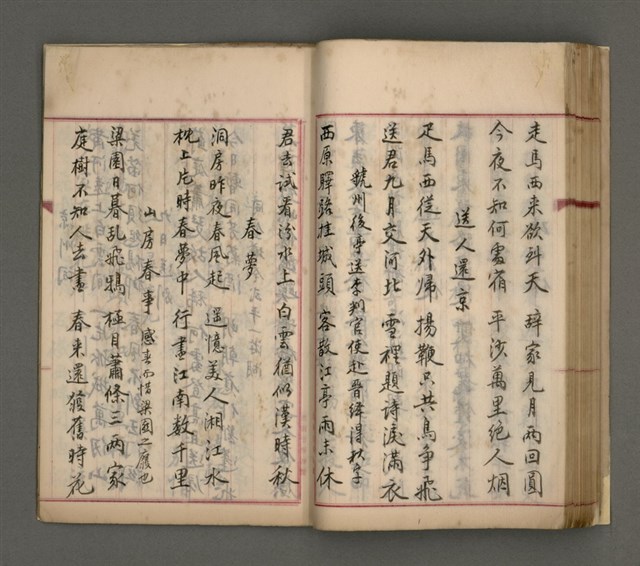 走馬西来欲到天 辞家見月兩回圓
今夜不知何處宿 平沙萬里绝人烟
送人還京
疋馬西從天外帰 揚鞭只共鳥争飛
送君九月交河北 雪裡題詩淚滿衣
虢州後亭送李判官使赴晉絳得秋字
西原驛路挂城頭 客散江亭雨未休
君去試看汾水上 白雲猶似漢時秋
春夢
洞房昨夜春風起 遥憶美人湘江水
枕上片時春夢中 行盡江南数千里
山房春事 感春而惜梁園之廢也
梁園日暮乱飛鴉 極目蕭條三两家
庭樹不知人去盡 春来還發舊時花